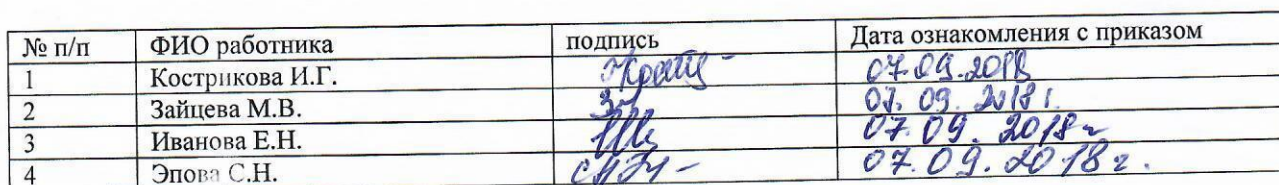 № п/п ФИО работника подпись Дата ознакомления с приказом
1 Кострикова И.Г. 07.09.2018
2 Зайцева М.В. 07.09.2018 г.
3 Иванова Е.Н. 07.09.2018 г
4 Эпова С.Н. 07.09.2018 г.